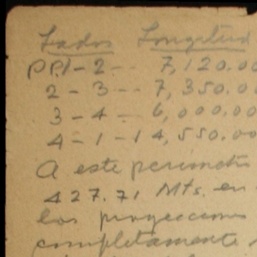 Lados Longitud
PP1-2-- 7,120.00
2 - 3 -- 7,350.00
3 - 4 - 6,000.00
4 - 1 - 14,550.00
A este perimetro
427.71 Mts. en
las proyecciones
completamente